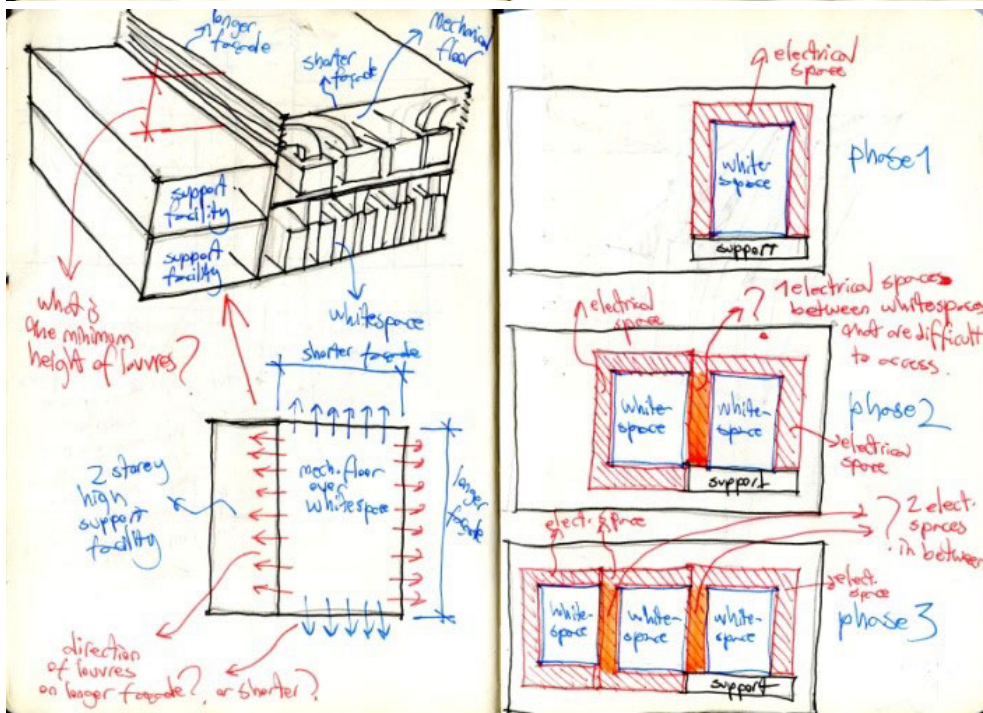 longer
façade
shorter
façade
mechanical
floor
support
facility
support
facility
what is
the minimum
height of louvres?
whitespace
shorter façade
2 storey
high
support
facility
mech. floor
over
whitespace
longer
façade
direction
of louvres
on longer façade? or shorter?
electrical
space
white-
space
phase 1
support
electrical
space
? 1 electrical spaces
between whitespaces
that are difficult
to access.
white-
space
white-
space
phase 2
electrical
space
support
elect. space
? 2 elect.
spaces
in between
elect.
space
white-
space
white-
space
white-
space
phase 3
support